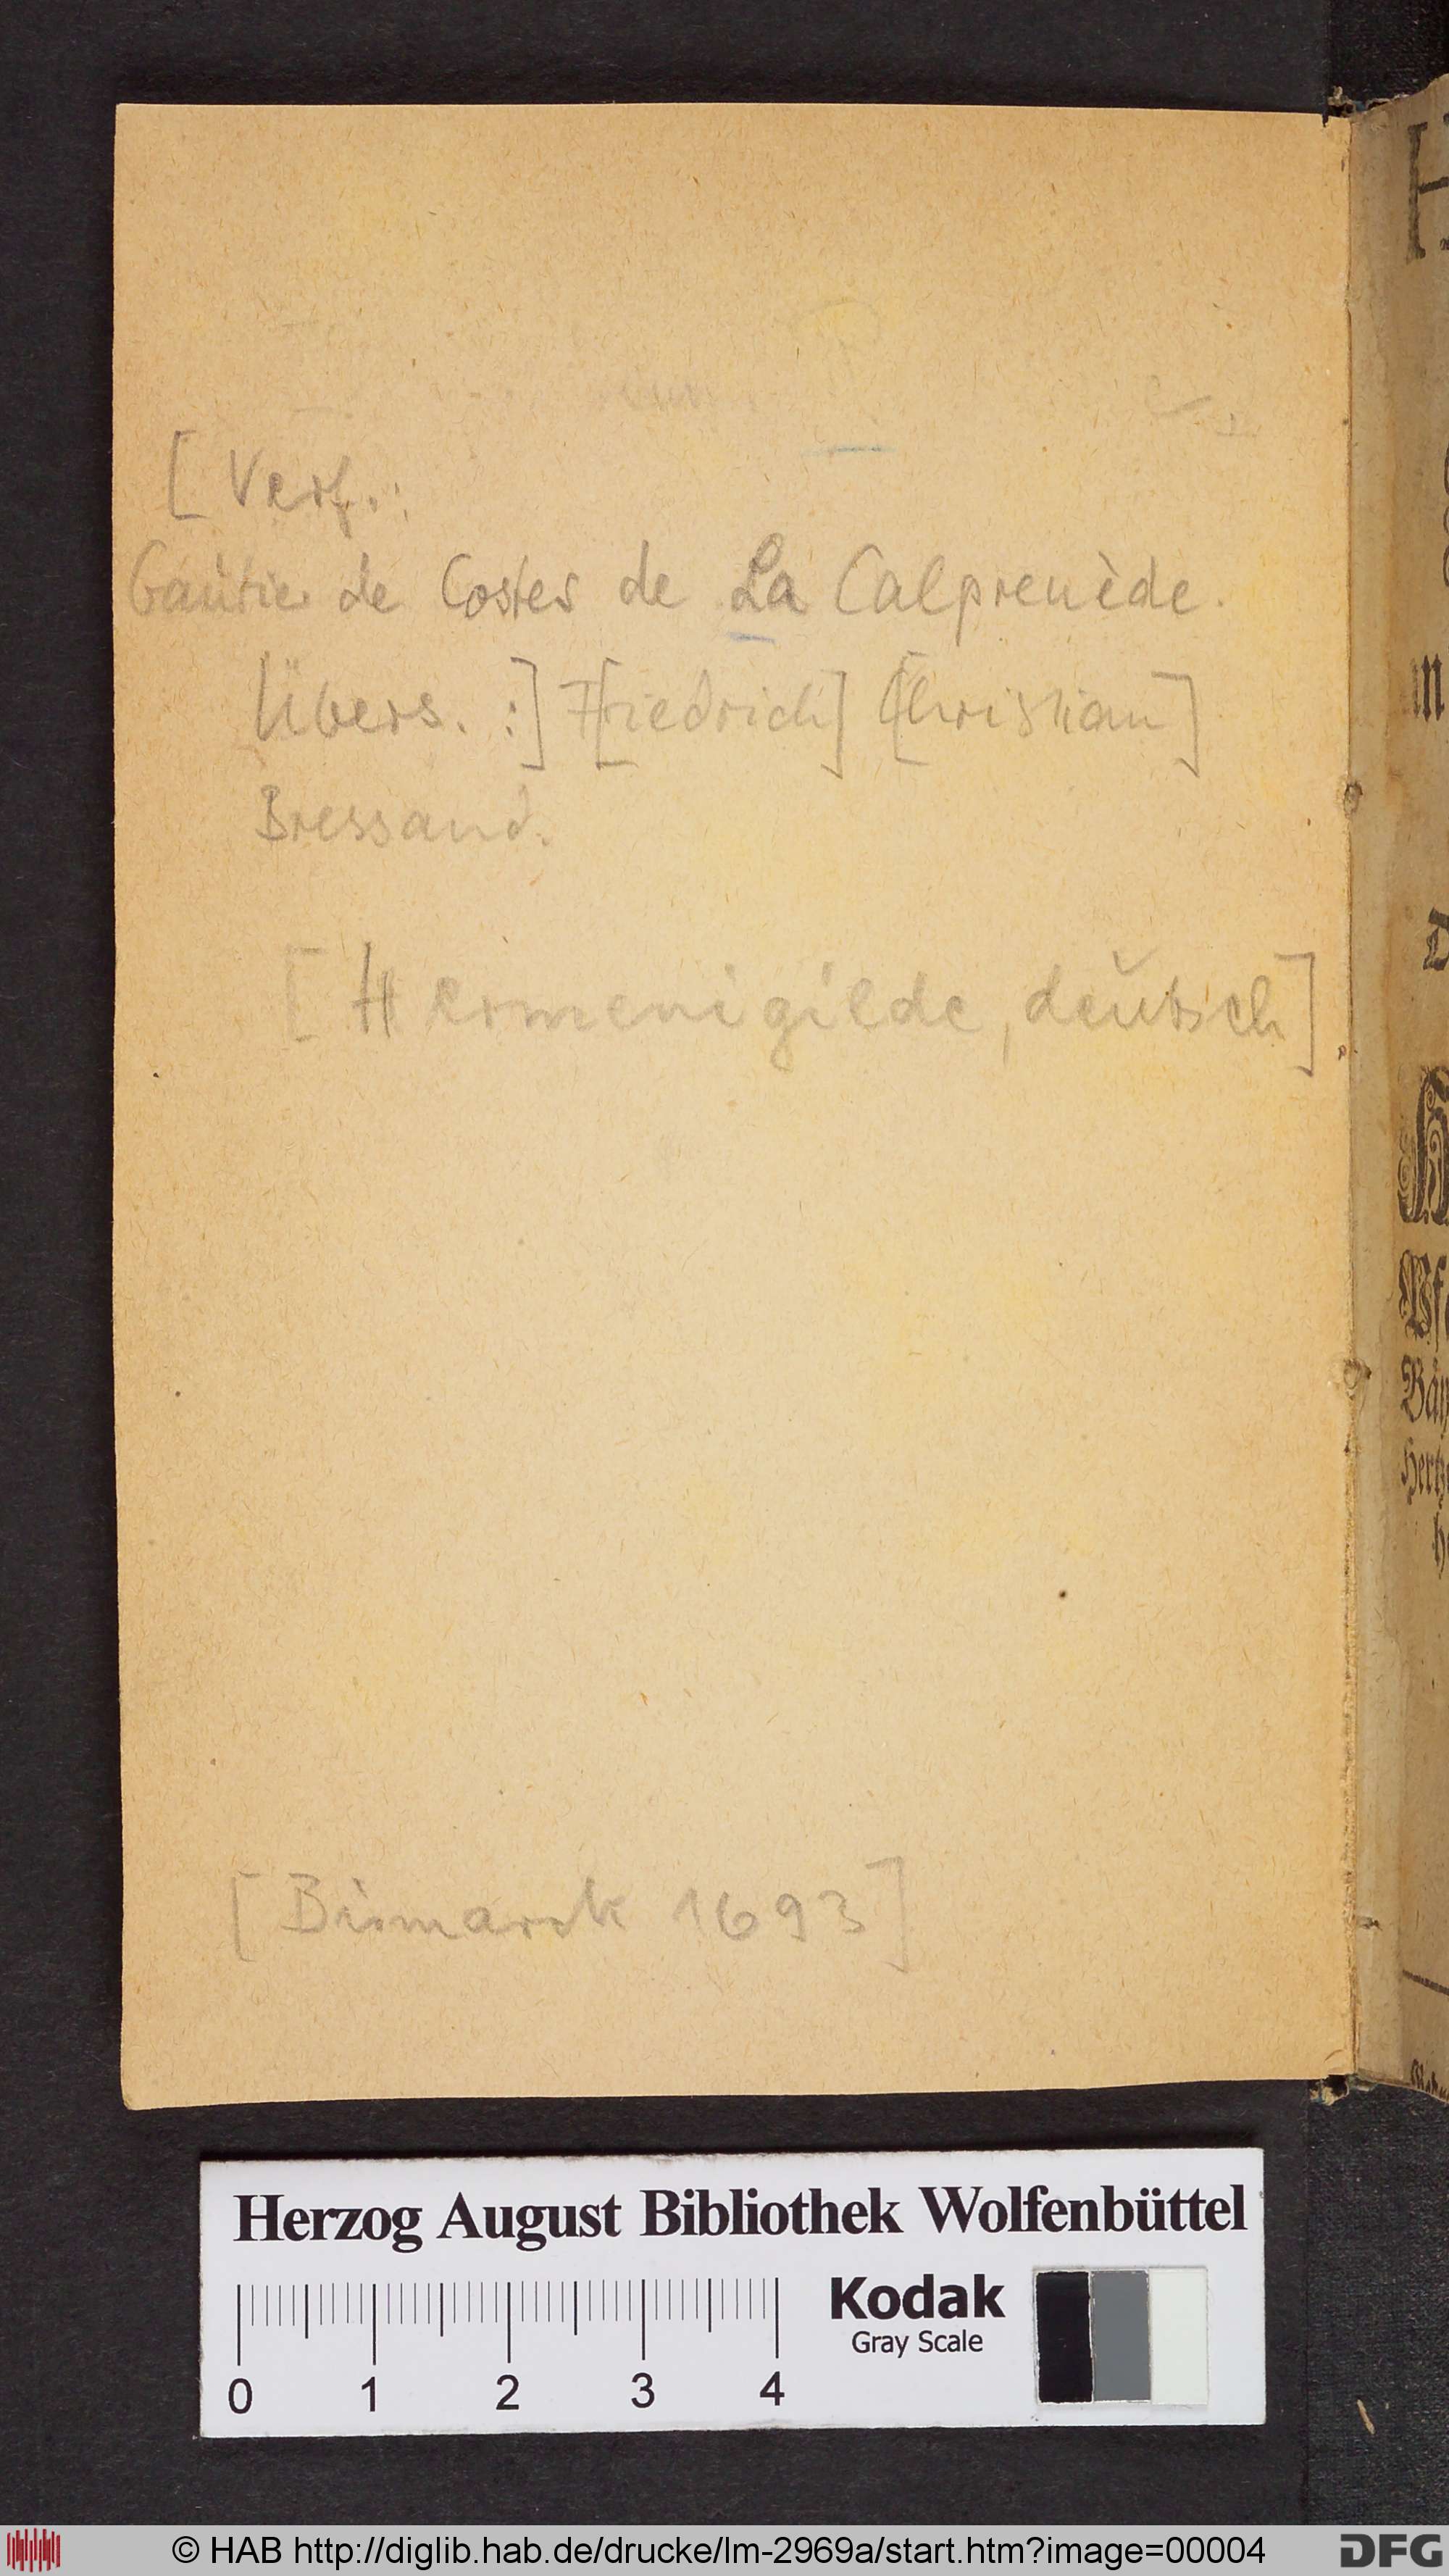 [ Verf.:
Gautier de Costes de La Calprenède.
Übers. :] F[riedrich] C[hristian]
Bressand.
[ Hermenigilde, deutsch ]
[ Bismarck 1693 ]
Herzog August Bibliothek Wolfenbüttel
Kodak
Gray Scale
0 1 2 3 4
© HAB http://diglib.hab.de/drucke/lm-2969a/start.htm?image=00004
DFG